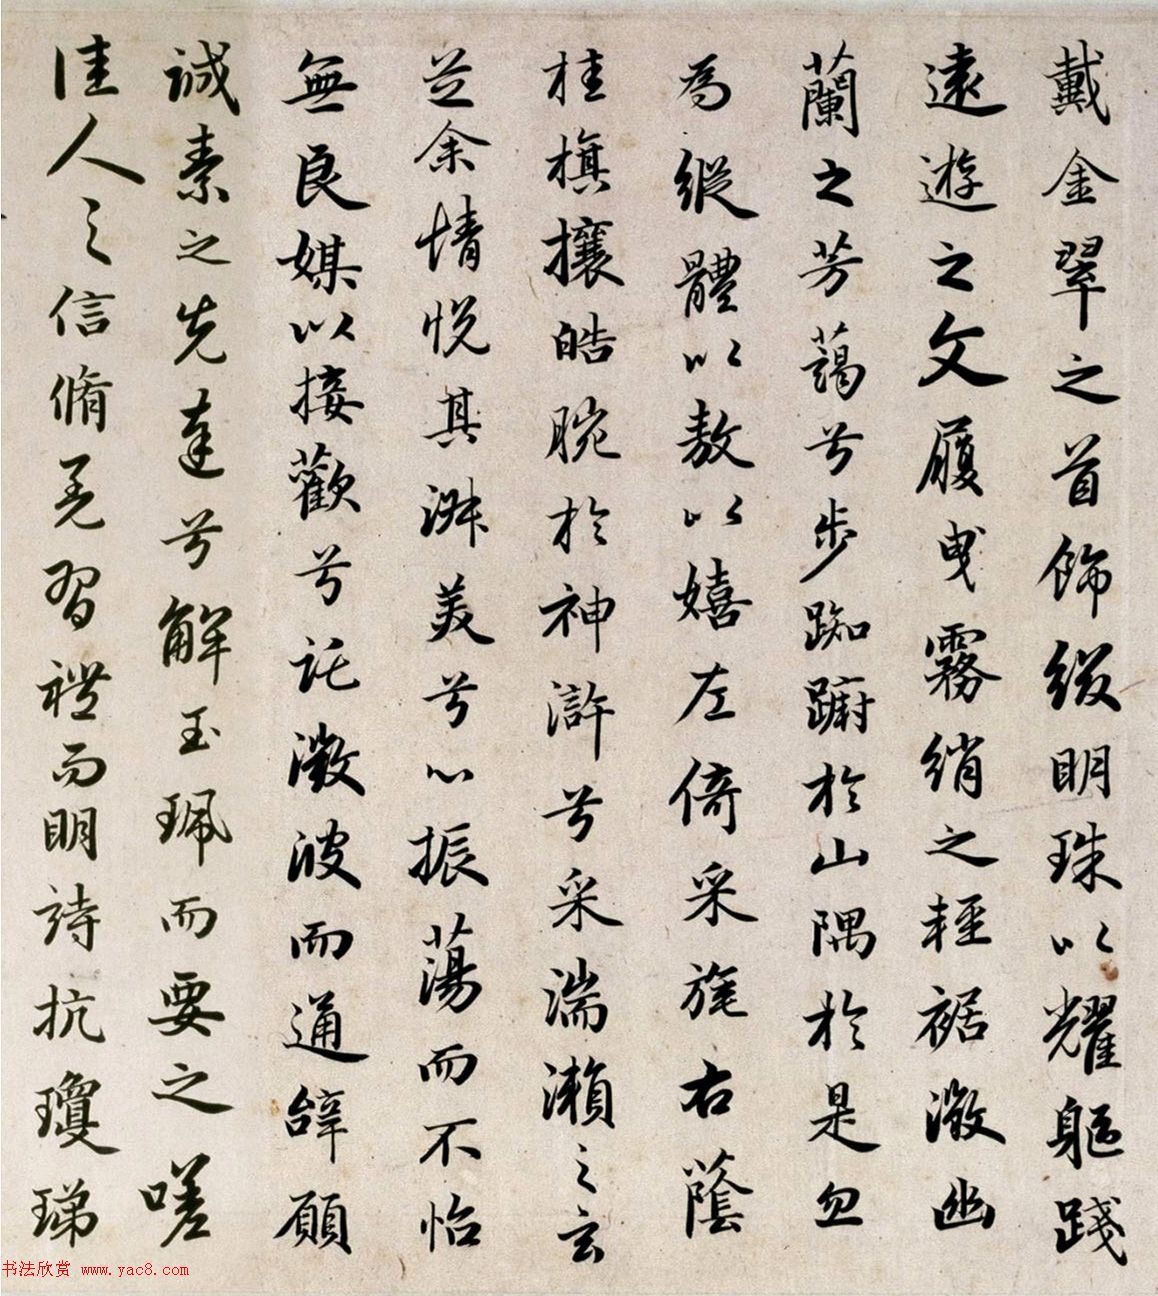 戴金翠之首飾綴明珠以耀軀踐
遠遊之文履曳霧綃之輕裾微幽
蘭之芳藹兮步踟躕於山隅於是忽
為縱體以敖以嬉左倚采旄右蔭
桂旗攘皓腕於神滸兮采湍瀨之玄
芝余情悅其淑美兮心振蕩而不怡
無良媒以接歡兮託微波而通辭願
誠素之先達兮解玉珮而要之嗟
佳人之信脩羌習禮而明詩抗瓊珶
书法欣赏 www.yac8.com